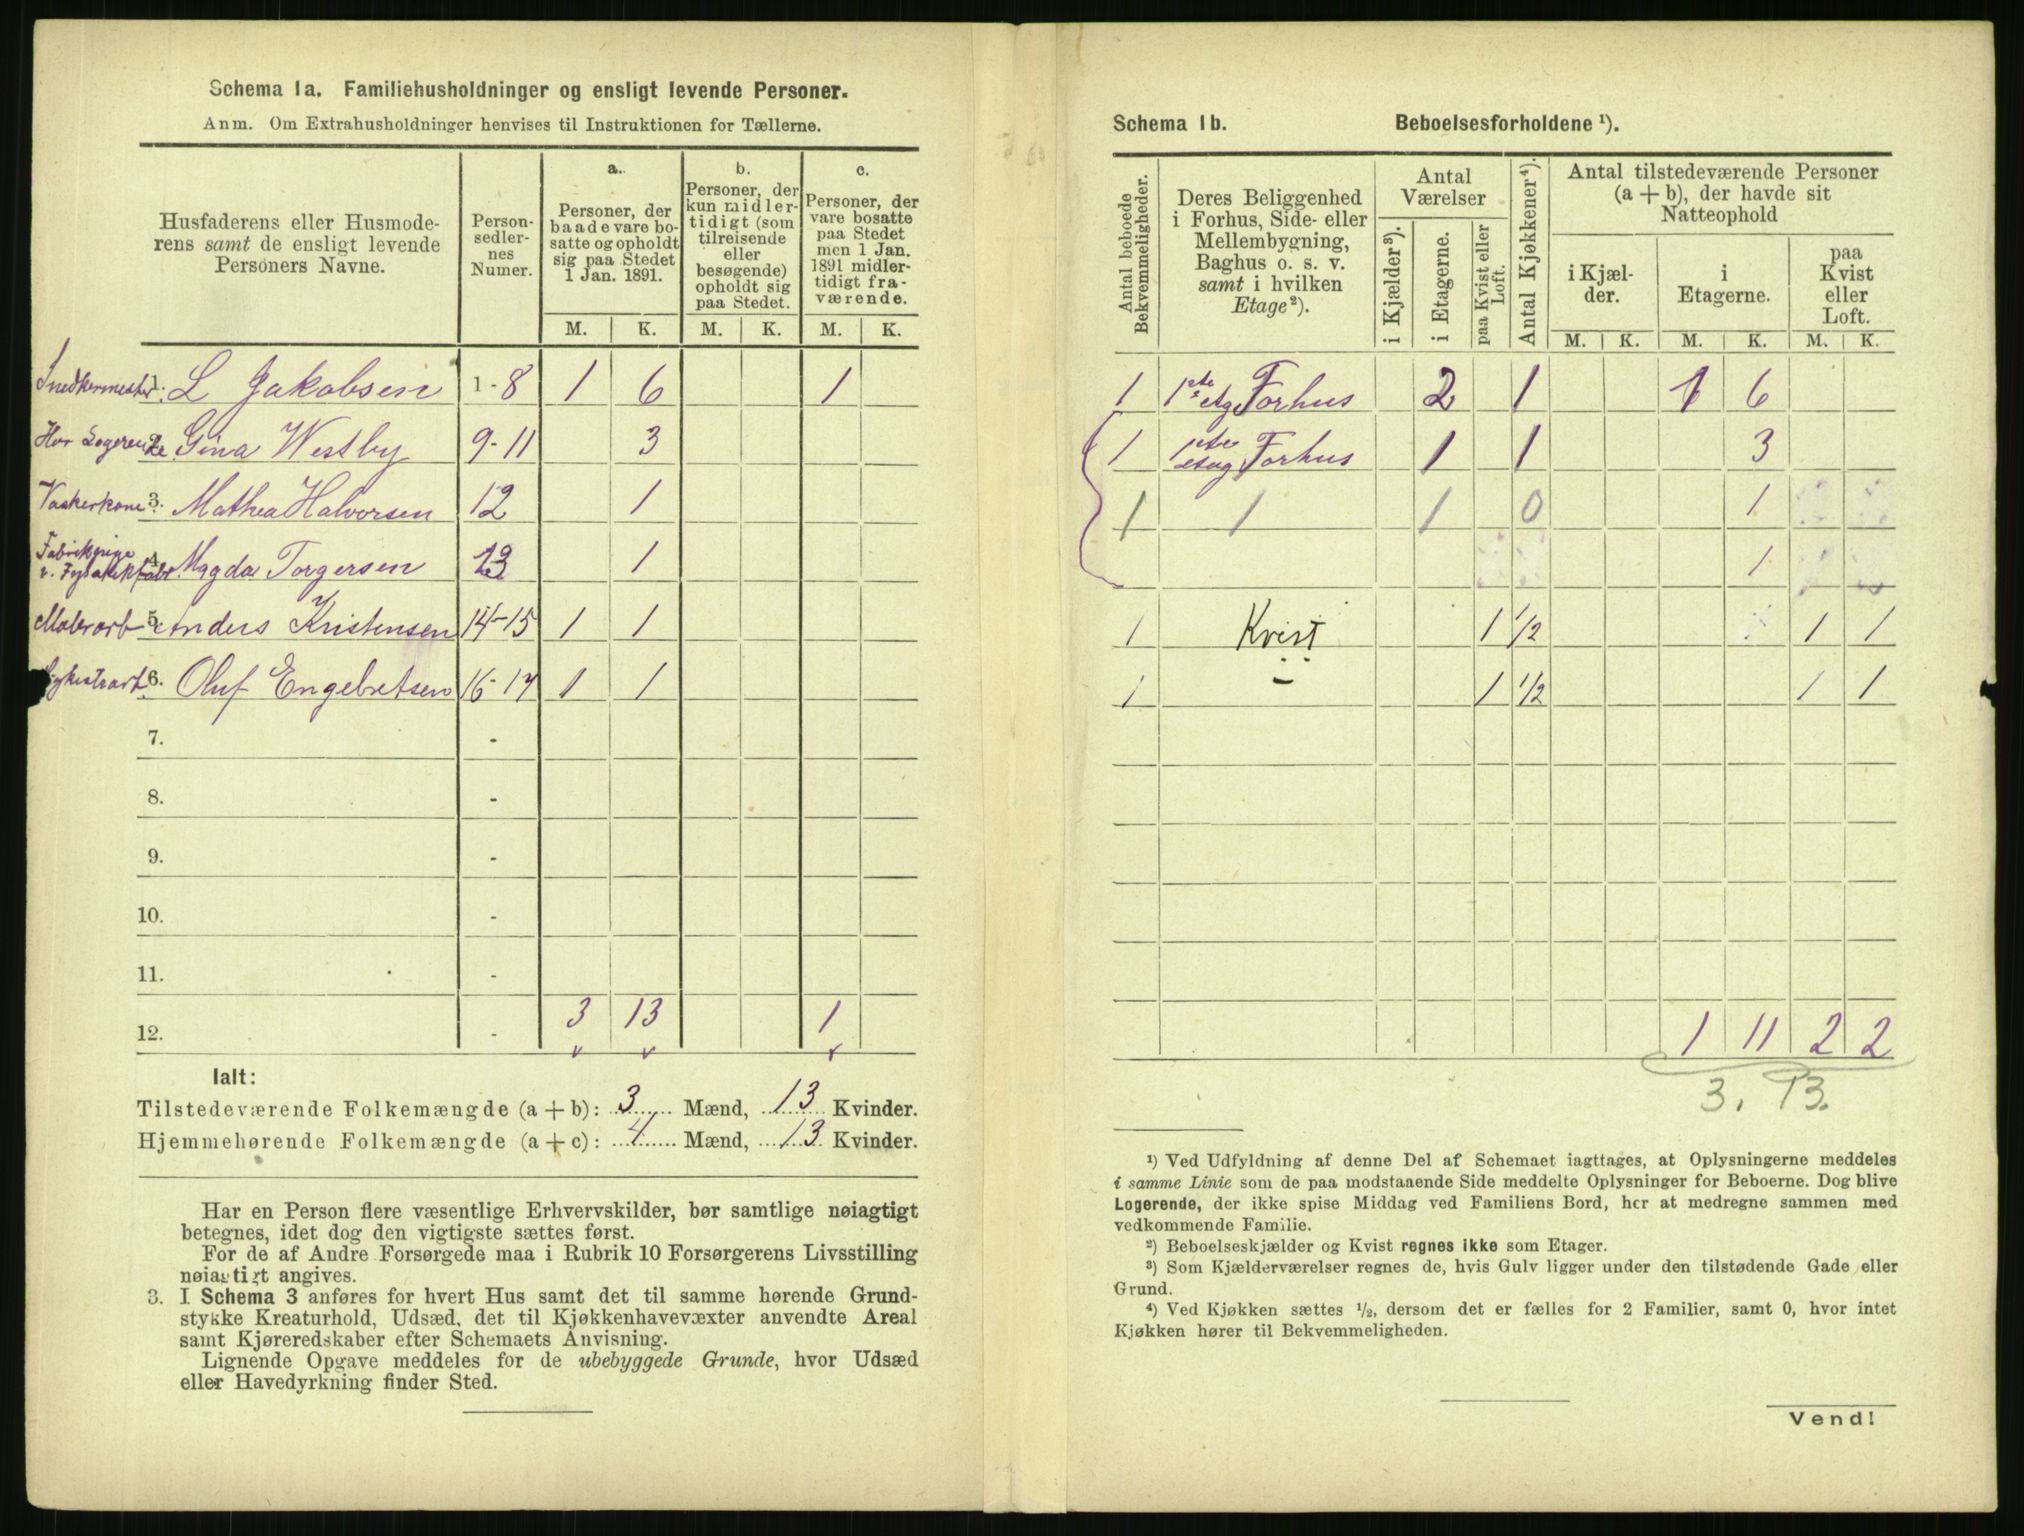 Schema 1a. Familiehusholdninger og ensligt levende Personer.
Anm. Om Extrahusholdninger henvises til Instruktionen for Tællerne.
Husfaderens eller Husmoderens samt de ensligt levende Personers Navne.
Personsedlernes Numer.
a. Personer, der baade vare bosatte og opholdt sig paa Stedet 1 Jan. 1891.
b. Personer, der kun midlertidigt (som tilreisende eller besøgende) opholdt sig paa Stedet.
c. Personer, der vare bosatte paa Stedet men 1 Jan. 1891 midlertidigt fraværende.
M. K. M. K. M. K.
Snedkermester 1. L Jakobsen 1-8 1 6 1
Har Logerende 2. Gina Westby 9-11 3
Vaskerkone 3. Mathea Halvorsen 12 1
Fabrikpige
4. Magda Torgersen 13 1
Malerarb 5. Anders Kristensen 14-15 1 1
6. Oluf Engebretsen 16-17 1 1
7. -
8. -
9. -
10. -
11. -
3 13 1
12. -
Ialt:
Tilstedeværende Folkemængde (a+b): 3 Mænd, 13 Kvinder.
Hjemmehørende Folkemængde (a+c): 4 Mænd, 13 Kvinder.
Har en Person flere væsentlige Erhvervskilder, bør samtlige nøiagtigt
betegnes, idet dog den vigtigste sættes først.
For de af Andre Forsørgede maa i Rubrik 10 Forsørgerens Livsstilling
nøiagtigt angives.
3. I Schema 3 anføres for hvert Hus samt det til samme hørende Grund-
stykke Kreaturhold, Udsæd, det til Kjøkkenhavevæxter anvendte Areal
samt Kjøreredskaber efter Schemaets Anvisning.
Lignende Opgave meddeles for de ubebyggede Grunde, hvor Udsæd
eller Havedyrkning finder Sted.
Schema 1b. Beboelsesforholdene ¹).
Antal beboede Bekvemmeligheder.
Deres Beliggenhed i Forhus, Side- eller Mellembygning, Baghus o. s. v. samt i hvilken Etage²).
Antal Værelser
i Kjælder³).
i Etagerne.
paa Kvist eller Loft.
Antal Kjøkkener⁴).
Antal tilstedeværende Personer (a + b), der havde sit Natteophold
i Kjælder.
i Etagerne.
paa Kvist eller Loft.
M. K. M. K. M. K.
1 1ste Etag Forhus 2 1 1 6
1 1ste etag Forhus 1 1 3
1 1 1 0 1
1
1 Kvist 1 1/2 1 1
1 - 1 1/2 1 1
1 11 2 2
3. 13.
¹) Ved Udfyldning af denne Del af Schemaet iagttages, at Oplysningerne meddeles
i samme Linie som de paa modstaaende Side meddelte Oplysninger for Beboerne. Dog blive
Logerende, der ikke spise Middag ved Familiens Bord, her at medregne sammen med
vedkommende Familie.
²) Beboelseskjælder og Kvist regnes ikke som Etager.
³) Som Kjælderværelser regnes de, hvis Gulv ligger under den tilstødende Gade eller
Grund.
⁴) Ved Kjøkken sættes ½, dersom det er fælles for 2 Familier, samt 0, hvor intet
Kjøkken hører til Bekvemmeligheden.
Vend!